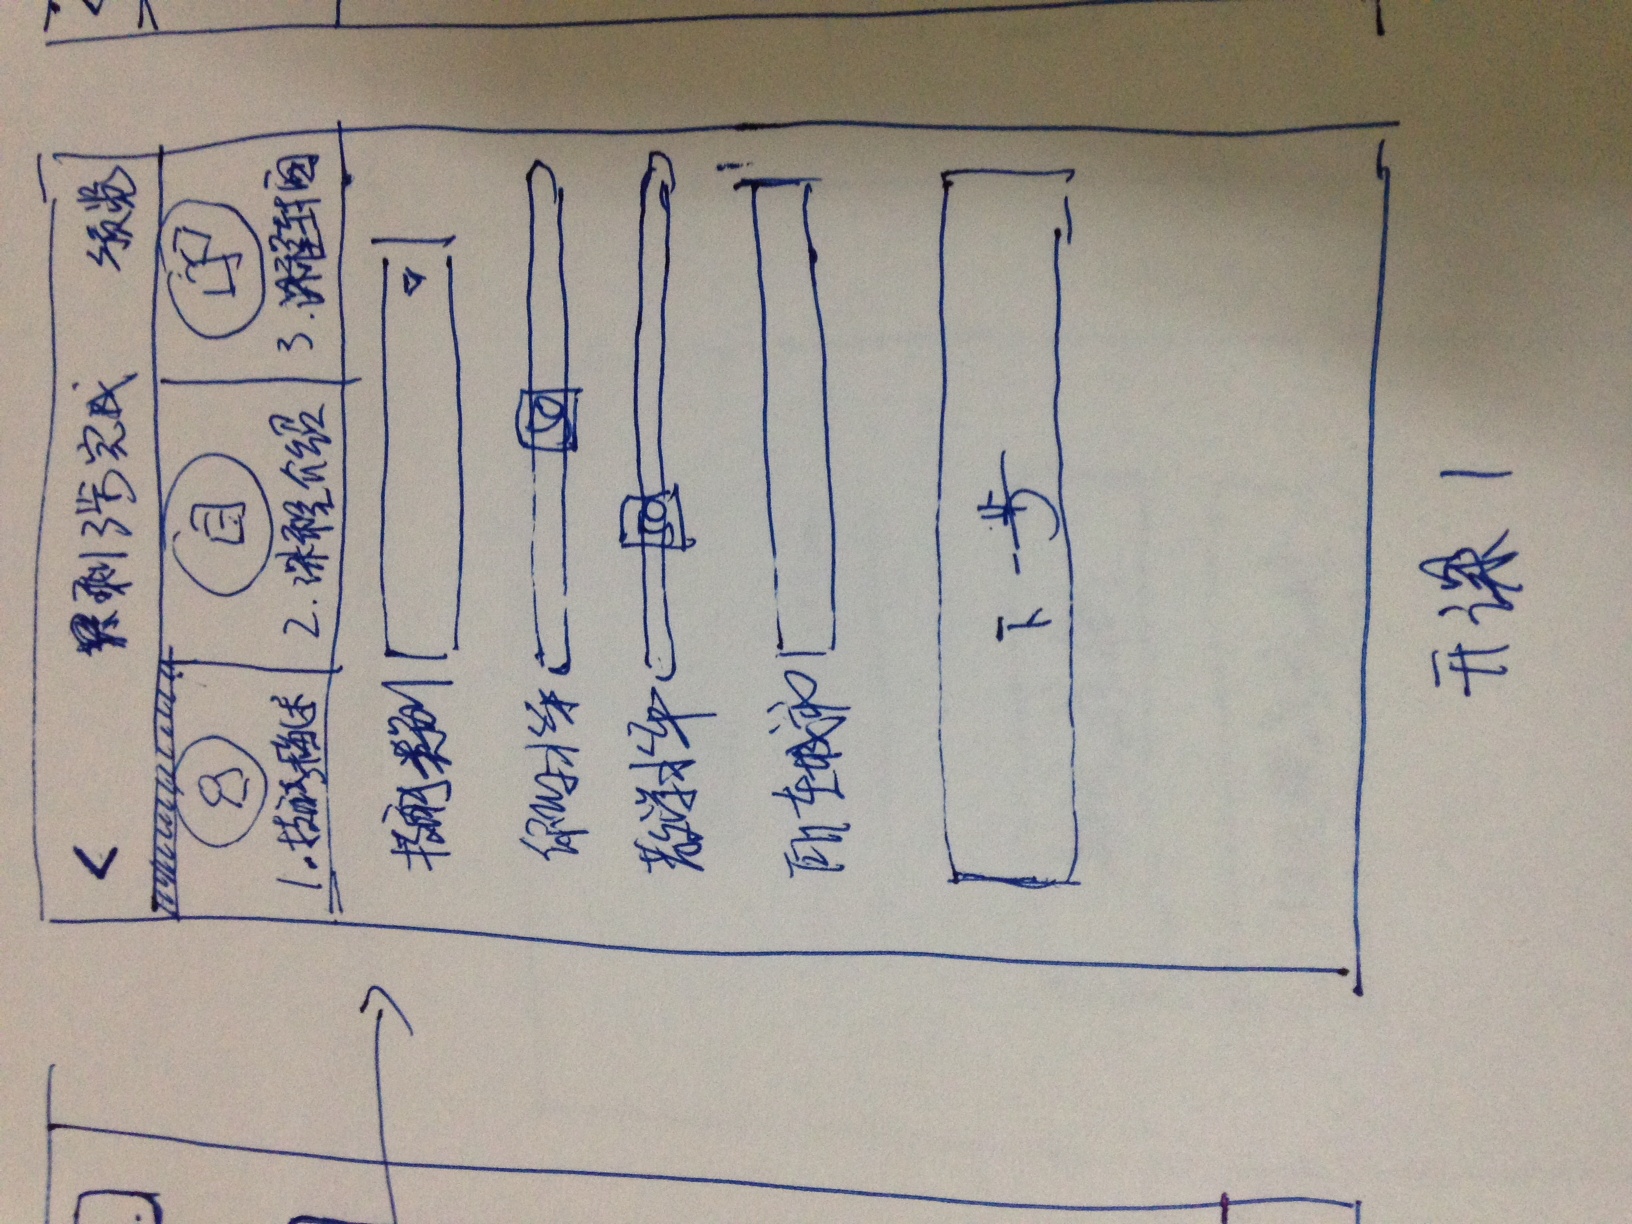 剩3步完成 预览
1.技能描述 2.课程介绍 3.课程封面
技能类别
教学水平
所在城市
下一步
开课1